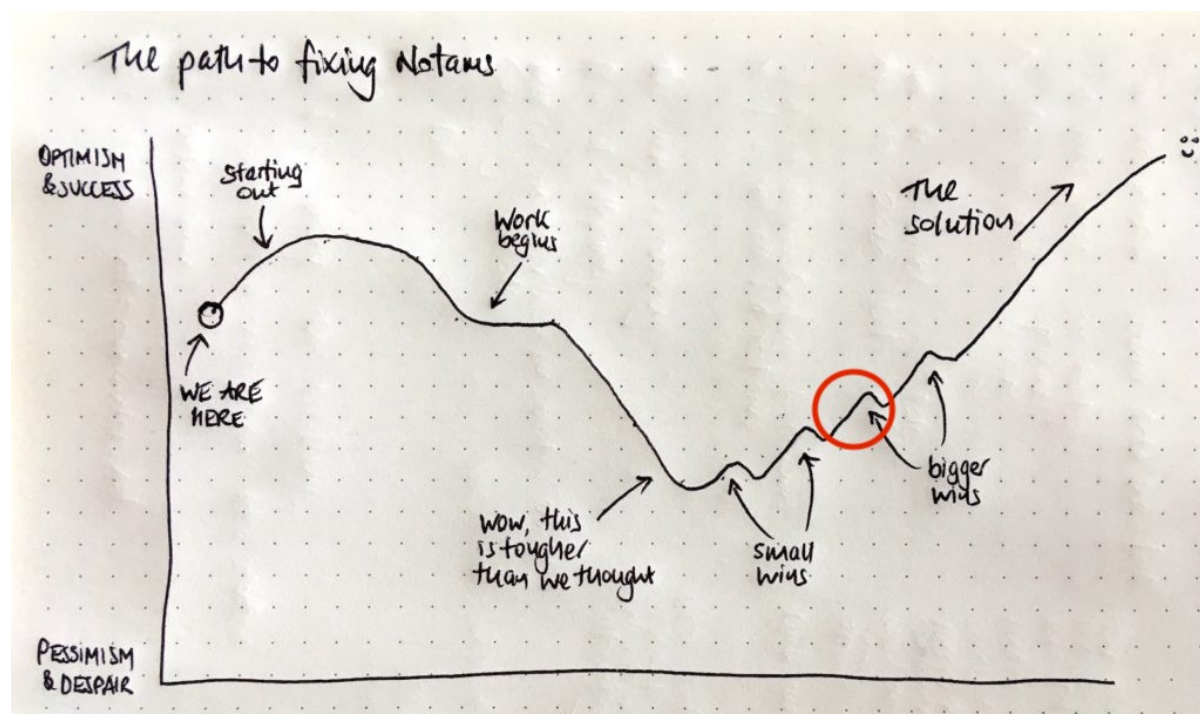 The path to fixing Notams
OPTIMISM
& SUCCESS
starting
out
Work
begins
The
solution
WE ARE
HERE
bigger
wins
wow, this
is tougher
than we thought
small
wins
PESSIMISM
& DESPAIR